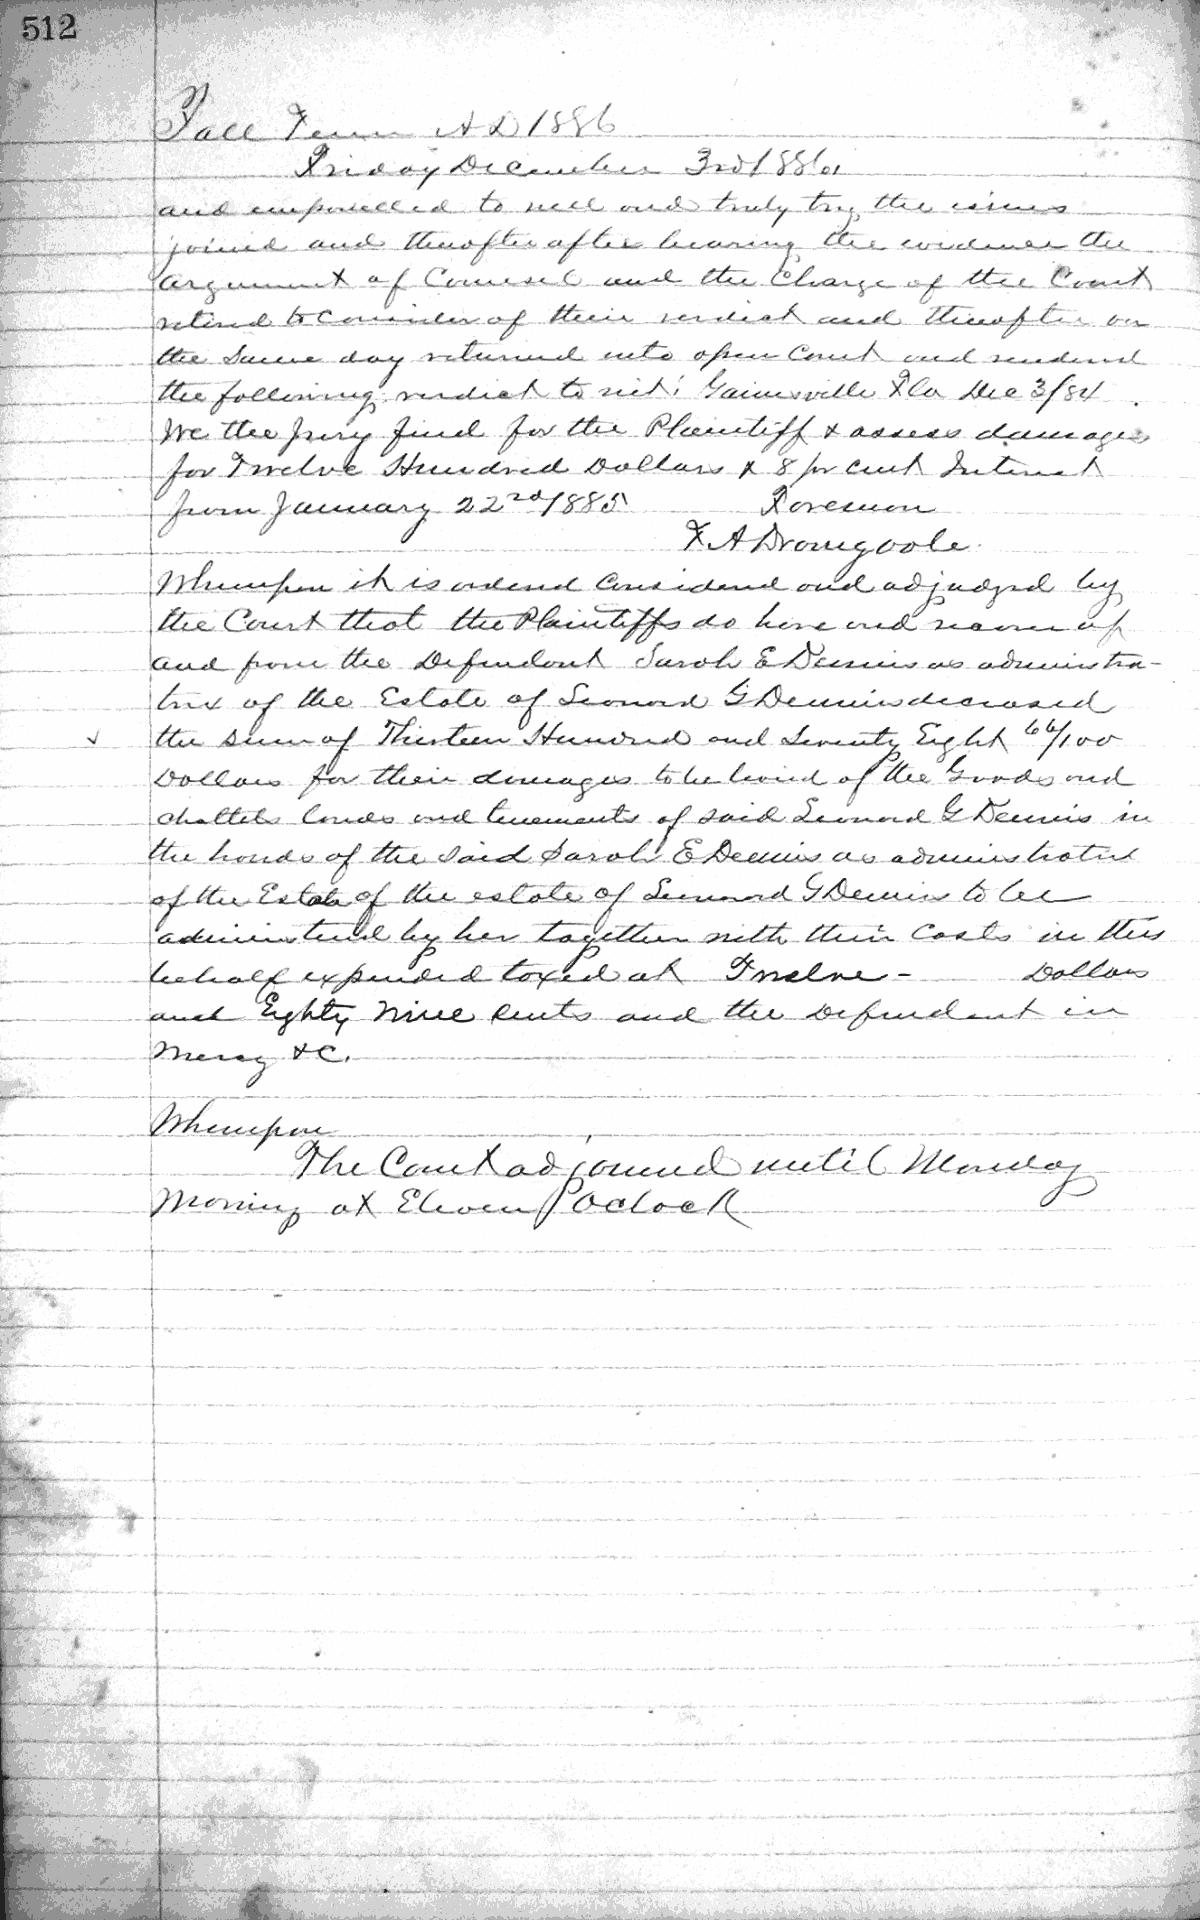 512
Fall Term A D 1886
Friday December 3rd 1886
and empanelled to well and truly try the issues
joined and thereafter after hearing the evidence the
argument of Counsel and the Charge of the Court
retired to consider of their verdict and thereafter on
the same day returned into open Court and rendered
the following verdict to wit: Gainesville Fla Dec 3/84
We the jury find for the Plaintiff & assess damages
for Twelve Hundred Dollars & 8 pr cent Interest
from January 22nd 1885 Foreman
F. A Dromgoole
Whereupon it is ordered considered and adjudged by
the Court that the Plaintiffs do have and recover of
and from the Defendant Sarah E Dennis as administra-
trix of the Estate of Leonard G Dennis deceased
the sum of Thirteen Hundred and Seventy Eight 66/100
Dollars for their damages to be levied of the Goods and
chattels lands and tenements of said Leonard G Dennis in
the hands of the said Sarah E Dennis as administratrix
of the Estate of the estate of Leonard G Dennis to be
administered by her together with their Costs in this
behalf expended taxed at Twelve - Dollars
and Eighty Nine Cents and the Defendant in
Mercy &C.
Whereupon
The Court adjourned until Monday
Morning at Eleven Oclock